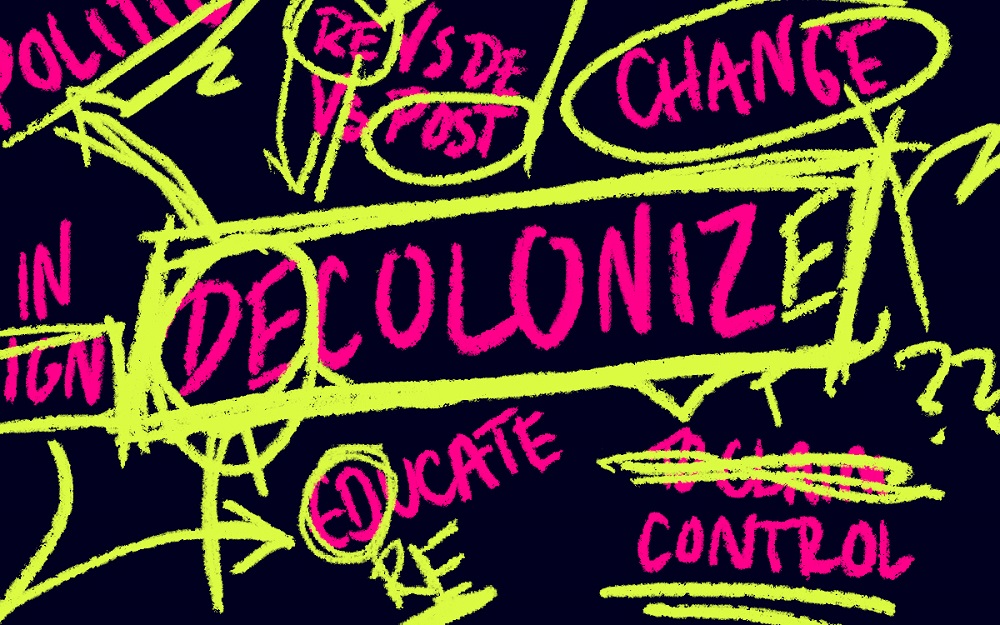 POLITI
RE VS DE
VS POST
CHANGE
IN
IGN
DECOLONIZE
??
EDUCATE
RE
TO CLAIM
CONTROL